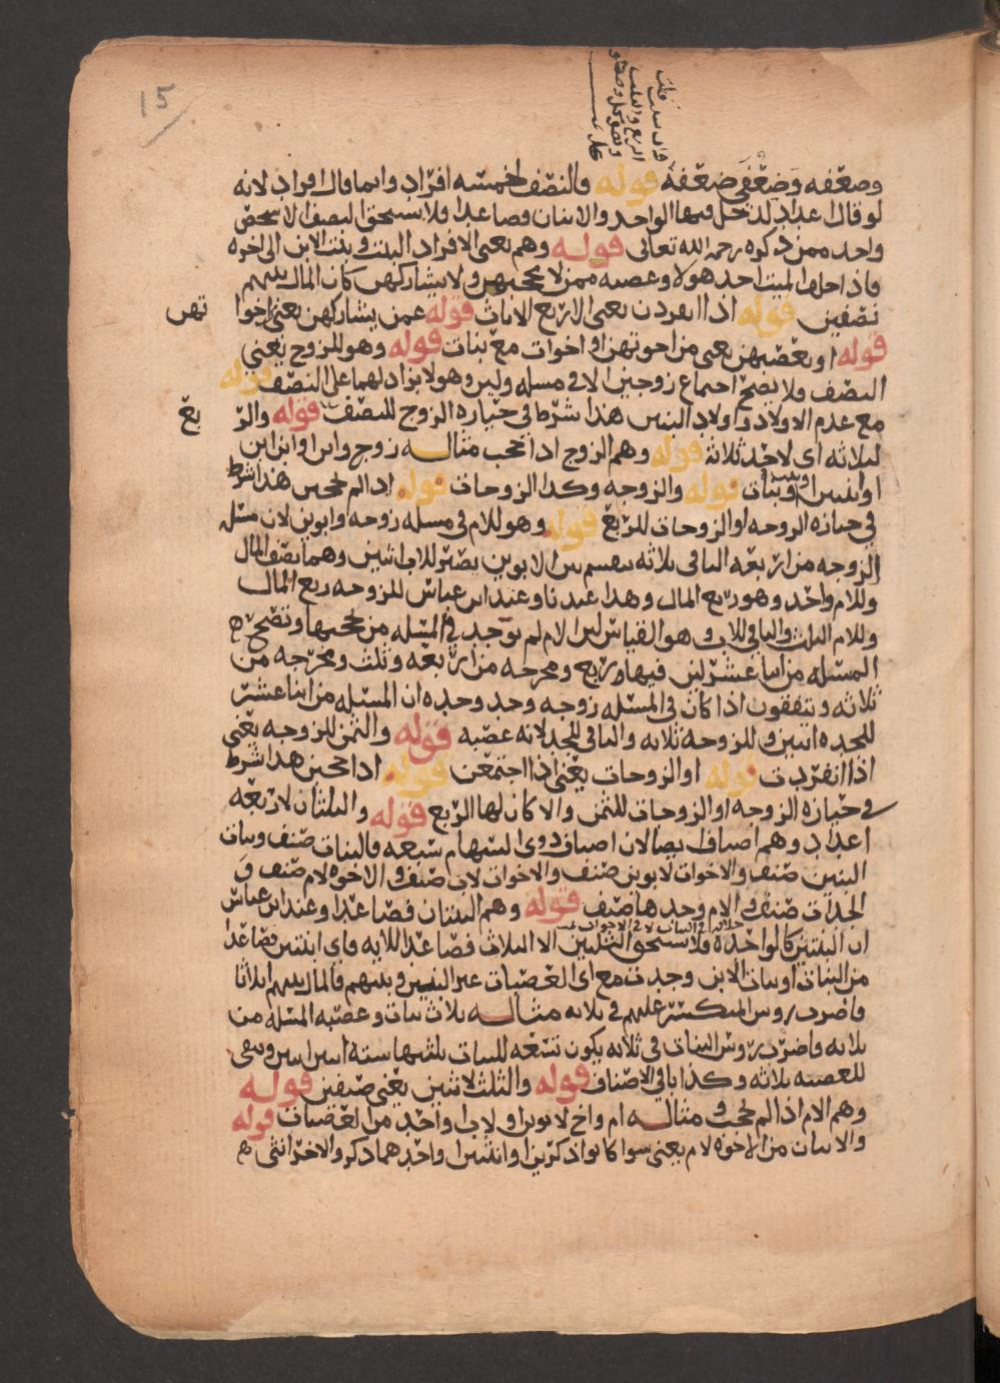 15
وضعفه وضعفي ضعفه قوله فالنصف لخمسه افراد وانما قال افراد لانه
لو قال اعداد لدخل فيها الواحد والاثنان فصاعدا فلا يستحق النصف الا شخص
واحد ممن ذكره رحمه الله تعالى قوله وهم يعني الافراد البنت وبنت الابن الى اخره
فاذا خلف الميت احد هولا وعصبه ممن لا يحجبهن ولا يشاركهن كان المال بينهم
نصفين قوله اذا انفردن يعني الاربع الاناث قوله عمن يشاركهن يعني اخوا تهن
قوله او يعصبهن يعني من اخوتهن او اخوات مع بنات قوله وهو للزوج يعني
النصف ولا يصح اجتماع زوجين الا في مسله ولبس وهو لا يزاد لهما على النصف قوله
مع عدم الاولاد واولاد البنين هذا شرط في حيازه الزوج للنصف قوله والر بع
لثلاثه اي لاحد ثلاثة قوله وهم الزوج اذا حجب مثاله زوج وابن او ابن ابن
او ابنتين او بنات قوله والزوجه وكذا الزوجات قوله اذا لم يحجبن هذا شرط
في حيازه الزوجه او الزوجات للربع قوله وهو للام في مسله زوجه وابوين لان مسله
الزوجه من اربعه الباقي ثلاثه ينقسم بين الابوين يصير للاب اثنين وهما نصف المال
وللام واحد وهو ربع المال وهذا عندنا وعند ابن عباس للزوجه ربع المال
وللام الثلث والباقي للاب وهو القياس لان الام لم توجد في المسله من يحجبها وتصح
المسله من اثنا عشر لان فيها ربع ومخرجه من اربعه وثلث ومخرجه من
ثلاثه ويتفقون اذا كان في المسله زوجه وجد وجده ان المسله من اثنا عشر
للجده اثنين وللزوجه ثلاثه والباقي للجد لانه عصبه قوله والثمن للزوجه يعني
اذا انفردت قوله او الزوجات يعني اذا اجتمعن قوله اذا حجبن هذا شرط
في حيازه الزوجه او الزوجات للثمن والا كان لها الربع قوله والثلثان لاربعه
اعداد وهم اصناف ايضا لان اصناف ذوي السهام سبعه فالبنات صنف وبنات
البنين صنف والاخوات لابوين صنف والاخوات لاب صنف والاخوه لام صنف و
الجدات صنف والام وحدها صنف قوله وهم البنتان فصاعدا وعند ابن عباس
ان البنتين كالواحده فلا يستحق الثلثين الا الثلاث فصاعدا للايه فاي ابنتين فصاعدا
من البنات او بنات الابن وجدت مع اي العصبات غير البنين وبنيهم فالمال بينهم اثلاثا
فاضرب روس المنكسر عليهم في ثلاثه مثاله ثلاث بنات وعصبه المسله من
ثلاثه فاضرب روس البنات في ثلاثه يكون تسعه للبنات ثلثيها سته اثنين اثنين وبقي
للعصبه ثلاثه وكذا باقي الاصناف قوله والثلث لاثنين يعني صنفين قوله
وهم الام اذا لم تحجب مثاله ام واخ لابوين او لاب او احد من العصبات قوله
والاثنان من الاخوه لام يعني سوا كانوا ذكرين او انثيين او احدهما ذكر والاخر انثى